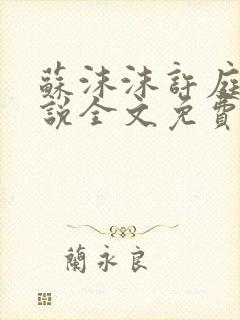 蘇沫沫許庭
說全文免費
蘭永良